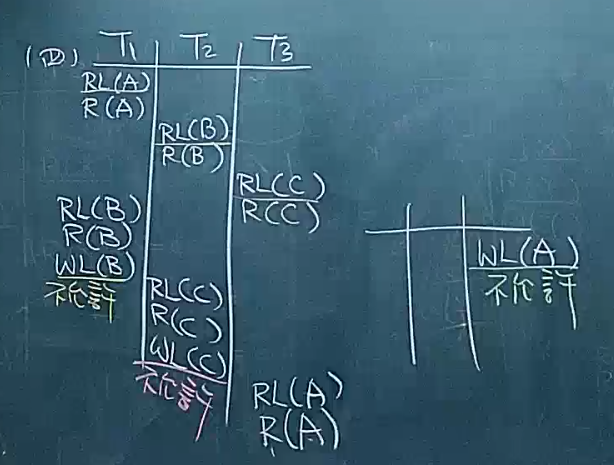 (四) T1 T2 T3
RL(A)
R(A)
RL(B)
R(B)
RL(C)
R(C)
RL(B)
R(B)
WL(B)
不允許
RL(C)
R(C)
WL(C)
不允許
RL(A)
R(A)
WL(A)
不允許